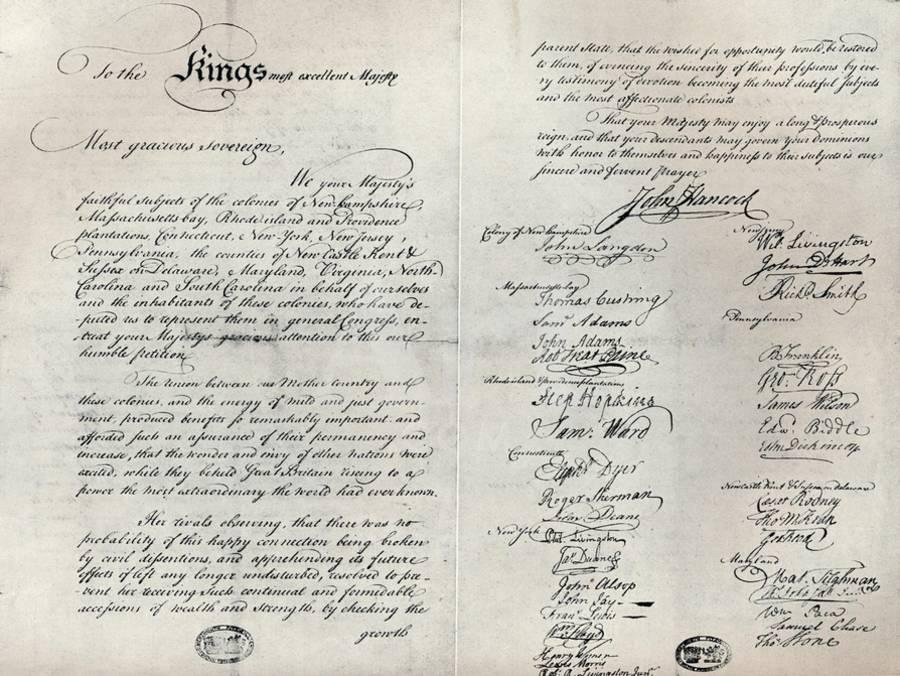 To the Kings most excellent Majesty
Most gracious Sovereign,
We your Majesty's
faithful subjects of the colonies of New hampshire,
Massachusetts bay, Rhode island and Providence
plantations, Connecticut, New-York, New Jersey,
Pennsylvania, the counties of New Castle Kent &
Sussex on Delaware, Maryland, Virginia, North-
Carolina and South Carolina in behalf of ourselves
and the inhabitants of these colonies, who have de-
puted us to represent them in general Congress, en-
treat your Majestys gracious attention to this our
humble petition
The union between our Mother Country and
these colonies, and the energy of mild and just govern-
ment, produced benefits so remarkably important and
afforded such an assurance of their permanency and
increase, that the wonder and envy of other nations were
excited, while they beheld Great Britain riseing to a
power the most extraordinary the world had ever known.
Her rivals observing, that there was no
probability of this happy connection being broken
by civil dissentions, and apprehending its future
effects if left any longer undisturbed, resolved to pre-
vent her receiving such continual and formidable
accessions of wealth and strength, by checking the
growth
parent State, that the wished for opportunity would be restored
to them, of evincing the sincerity of their professions by eve-
ry testimony of devotion becoming the most dutiful subjects
and the most affectionate colonists
That your Majesty may enjoy a long & prosperous
reign, and that your descendants may govern your Dominions
with honor to themselves and happiness to their subjects is our
sincere and fervent prayer
John Hancock
Colony of New hampshire
John Langdon
Massachusetts bay
Thomas Cushing
Saml Adams
John Adams
Rob Treat Paine
Rhode island & providence plantations
Step Hopkins
Sam: Ward
Connecticut
Elipht Dyer
Roger Sherman
Silas Deane
New York
Phil. Livingston
Jas Duane
John Alsop
John Jay
Frans Lewis
Wm Floyd
Henry Wisner
Lewis Morris
Rob. R. Livingston Junr
New Jersey
Wil: Livingston
John DeHart
Richd Smith
Pennsylvania
B Franklin
Geo: Ross
James Wilson
Edwd Biddle
John Dickinson
Newcastle Kent & Sussex on delaware
Caesar Rodney
Tho M:Kean
Geo Read
Maryland
Mat. Tilghman
Wm Paca
Samuel Chase
Tho: Stone